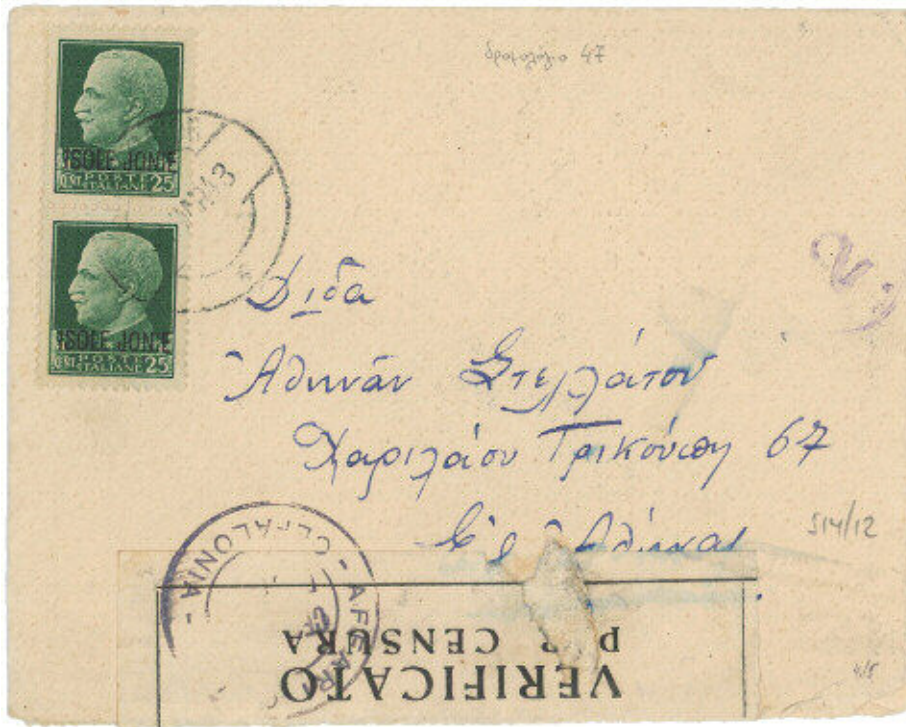 47
ISOLE JONIE
POSTE
ITALIANE 25
ISOLE JONIE
POSTE
ITALIANE 25
43
Διδα
Ἀθηνᾶν Στελλάτου
Χαριλάου Τρικούπη 67
Ἀθήνας
514/12
- CEFALONIA -
VERIFICATO
PER CENSURA
4/5